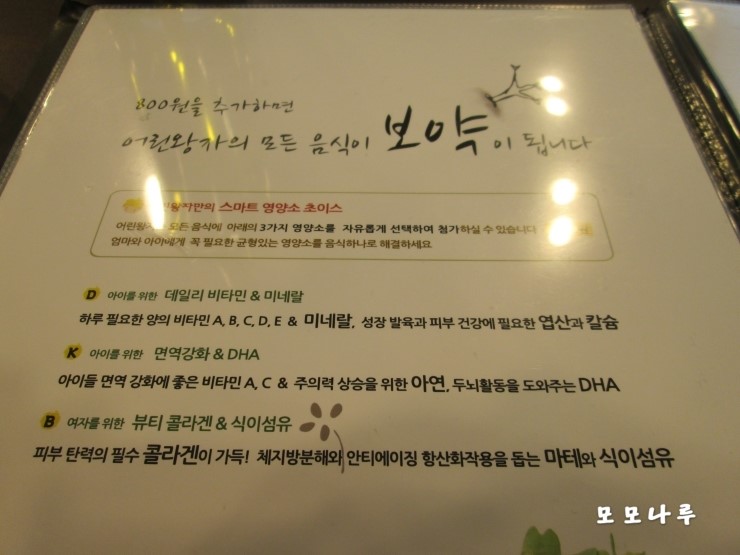 800원을 추가하면
어린왕자의 모든 음식이 보약이 됩니다
왕자만의 스마트 영양소 초이스
어린왕자 모든 음식에 아래의 3가지 영양소를 자유롭게 선택하여 첨가하실 수 있습니다
엄마와 아이에게 꼭 필요한 균형있는 영양소를 음식하나로 해결하세요
D 아이를 위한 데일리 비타민 & 미네랄
하루 필요한 양의 비타민 A, B, C, D, E & 미네랄, 성장 발육과 피부 건강에 필요한 엽산과 칼슘
K 아이를 위한 면역강화 & DHA
아이들 면역 강화에 좋은 비타민 A, C & 주의력 상승을 위한 아연, 두뇌활동을 도와주는 DHA
B 여자를 위한 뷰티 콜라겐 & 식이섬유
피부 탄력의 필수 콜라겐이 가득! 체지방분해와 안티에이징 항산화작용을 돕는 마테와 식이섬유
모모나루